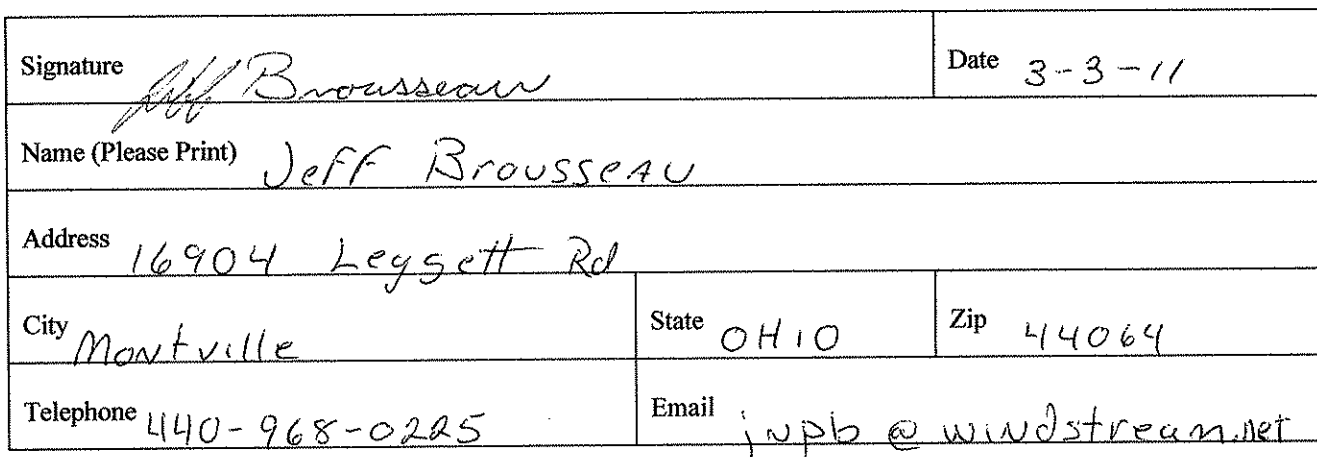 Signature Jeff Brousseau Date 3-3-11
Name (Please Print) Jeff Brousseau
Address 16904 Leggett Rd
City Montville State OHIO Zip 44064
Telephone 440-968-0225 Email jnpb@windstream.net